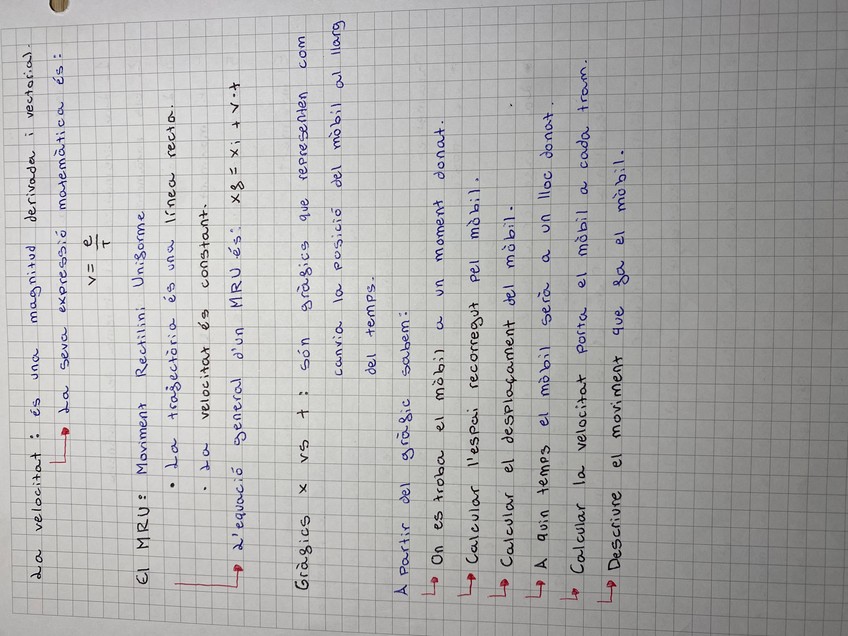 La velocitat: és una magnitud derivada i vectorial.
↳ La seva expressió matemàtica és:
v = e/T
El MRU: Moviment Rectilini Uniforme
• La trajectòria és una línea recta.
• La velocitat és constant.
↳ L'equació general d'un MRU és: xf = xi + v·t
Gràfics x vs t: són gràfics que representen com
canvia la posició del mòbil al llarg
del temps.
A partir del gràfic sabem:
↳ On es troba el mòbil a un moment donat.
↳ Calcular l'espai recorregut pel mòbil.
↳ Calcular el desplaçament del mòbil.
↳ A quin temps el mòbil serà a un lloc donat.
↳ Calcular la velocitat porta el mòbil a cada tram.
↳ Descriure el moviment que fa el mòbil.